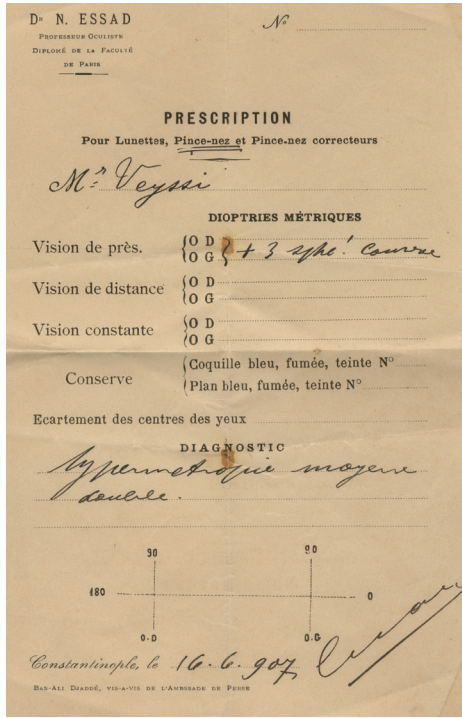 Dr N. ESSAD
PROFESSEUR OCULISTE
DIPLOMÉ DE LA FACULTÉ
DE PARIS
No
PRESCRIPTION
Pour Lunettes, Pince-nez et Pince-nez correcteurs
Mr Veyssi
DIOPTRIES MÉTRIQUES
Vision de près. O D
O G + 3 sphé. convexe
Vision de distance O D
O G
Vision constante O D
O G
Conserve Coquille bleu, fumée, teinte No
Plan bleu, fumée, teinte No
Ecartement des centres des yeux
DIAGNOSTIC
hypermetropie moyenne
double.
90 90
180 0
O.D O.G
Constantinople, le 16.6.907
BAB-ALI DJADDÉ, VIS-A-VIS DE L'AMBSSADE DE PERSE